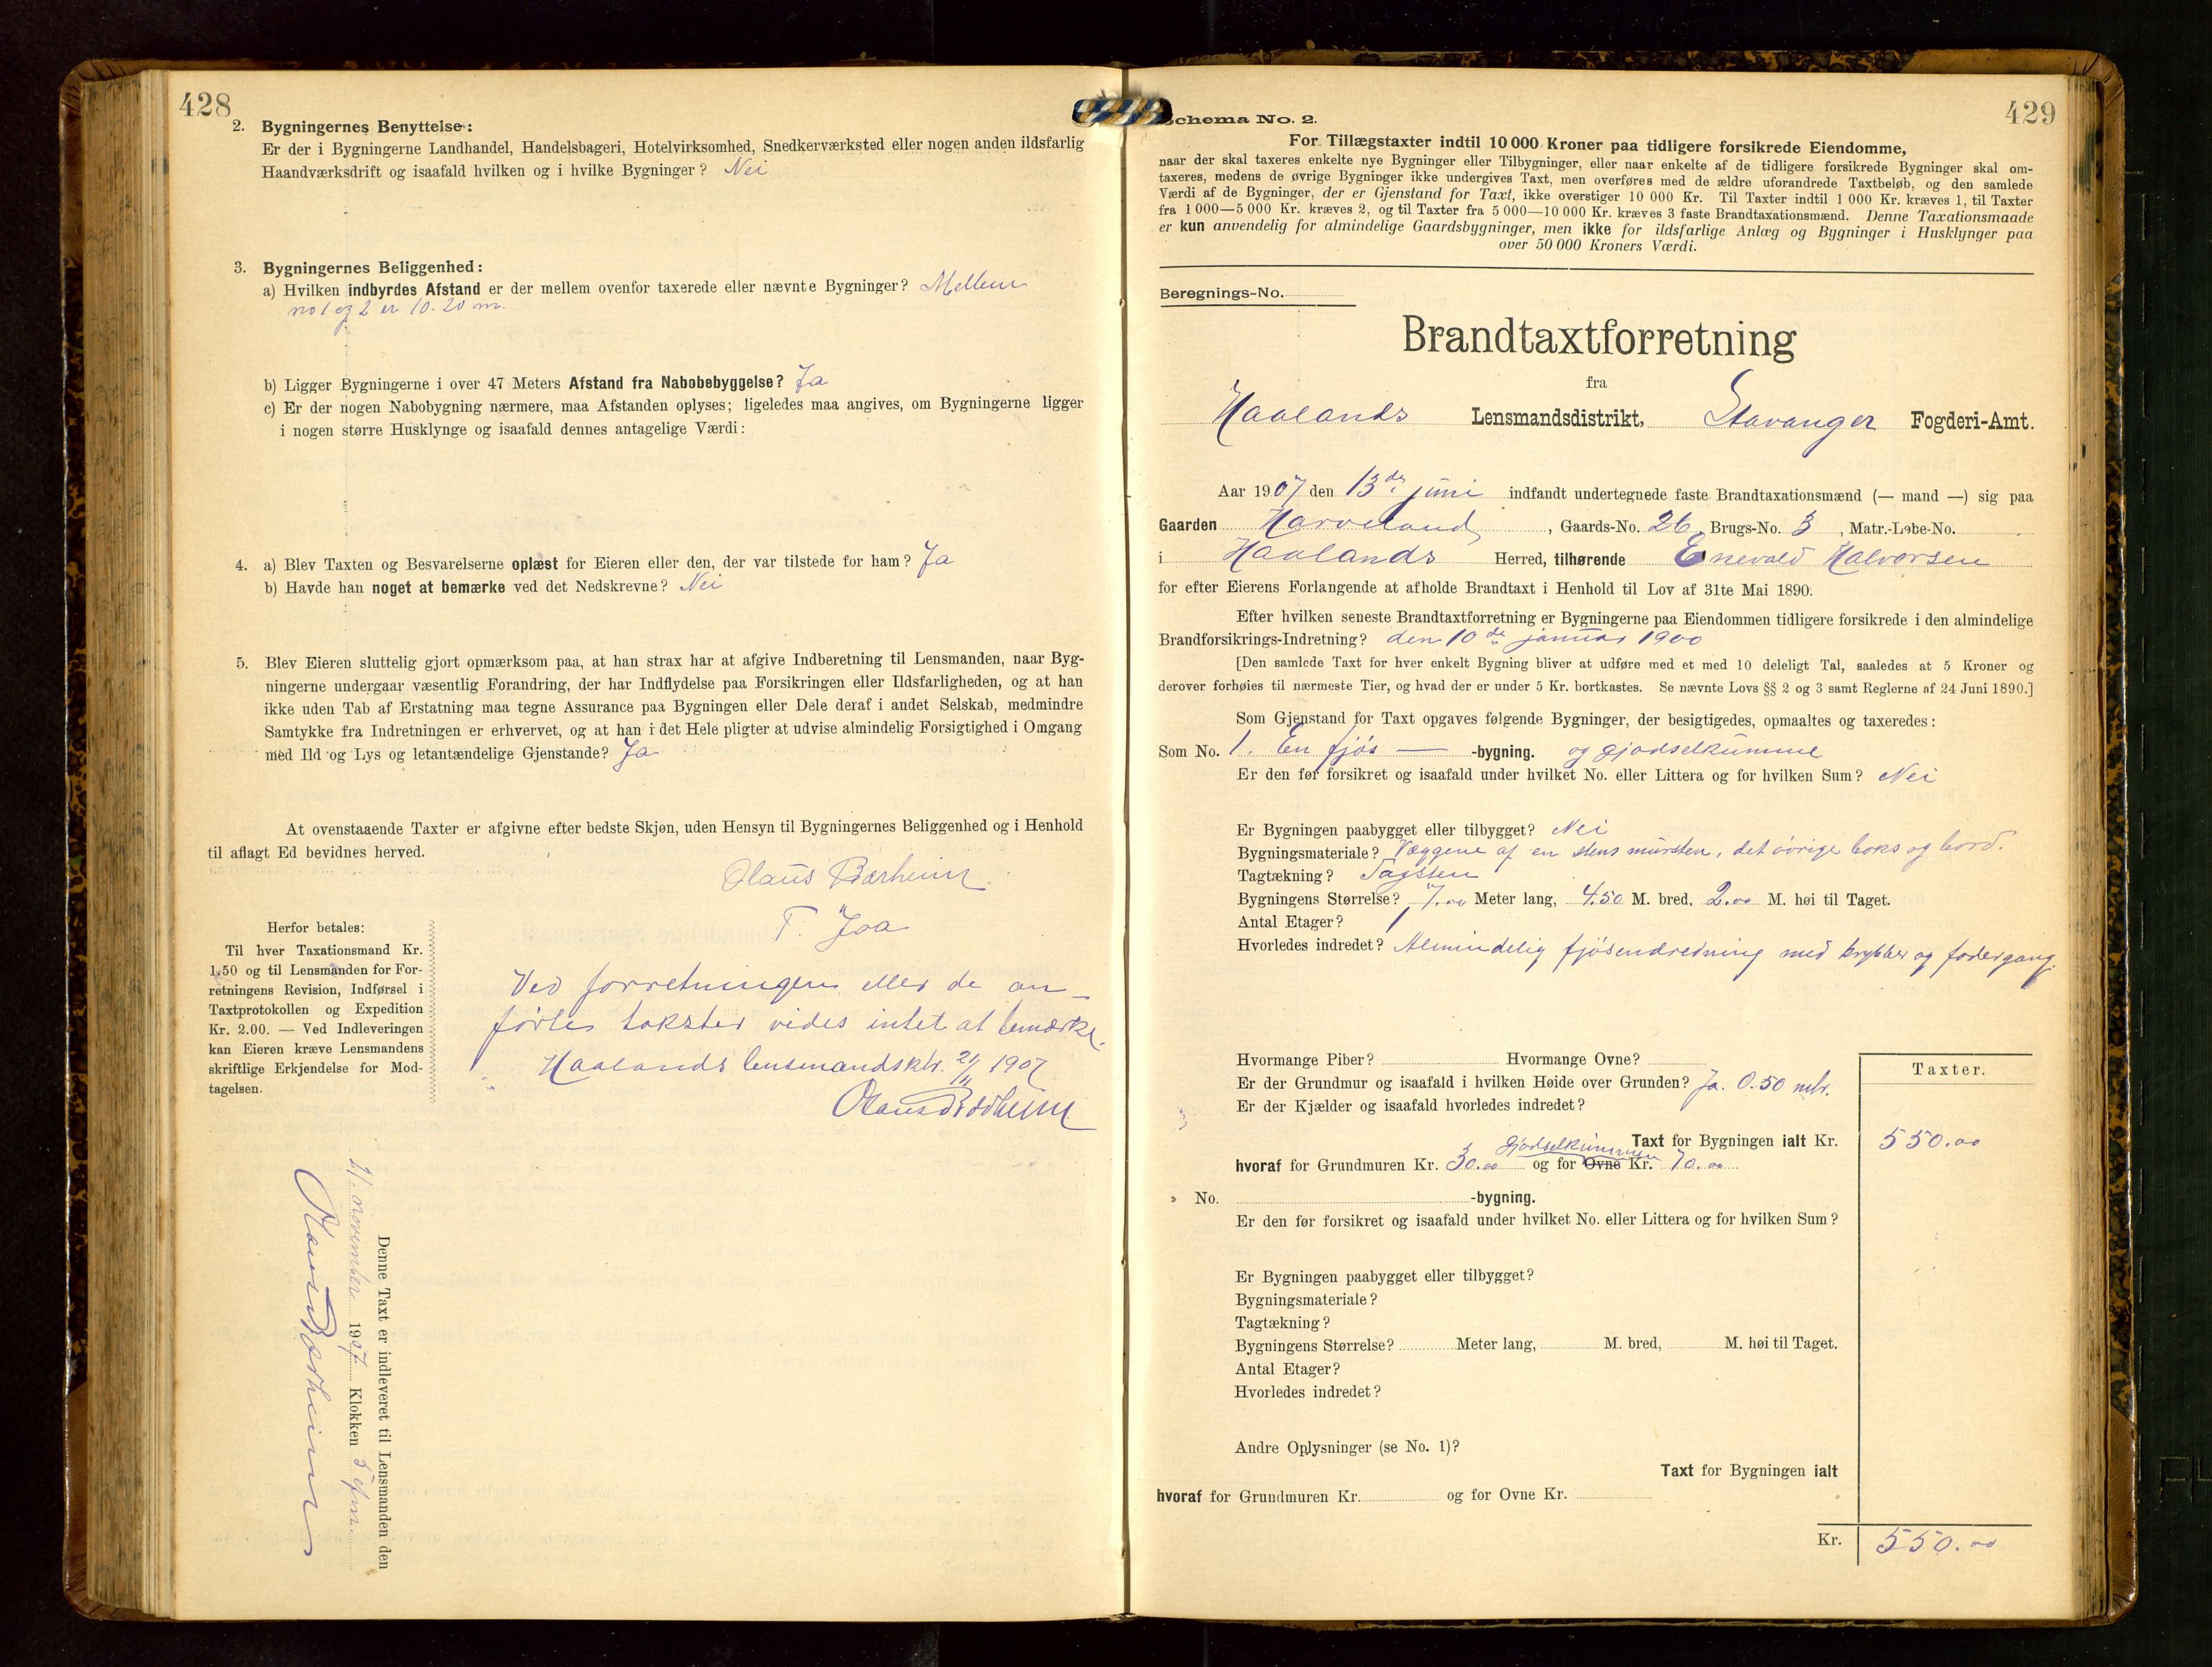 428
2. Bygningernes Benyttelse:
Er der i Bygningerne Landhandel, Handelsbageri, Hotelvirksomhed, Snedkerværksted eller nogen anden ildsfarlig
Haandværksdrift og isaafald hvilken og i hvilke Bygninger? Nei
3. Bygningernes Beliggenhed:
a) Hvilken indbyrdes Afstand er der mellem ovenfor taxerede eller nævnte Bygninger? Mellem
no 1 og 2 er 10.20 m.
b) Ligger Bygningerne i over 47 Meters Afstand fra Nabobebyggelse? Ja
c) Er der nogen Nabobygning nærmere, maa Afstanden oplyses; ligeledes maa angives, om Bygningerne ligger
i nogen større Husklynge og isaafald dennes antagelige Værdi:
4. a) Blev Taxten og Besvarelserne oplæst for Eieren eller den, der var tilstede for ham? Ja
b) Havde han noget at bemærke ved det Nedskrevne? Nei
5. Blev Eieren sluttelig gjort opmærksom paa, at han strax har at afgive Indberetning til Lensmanden, naar Byg-
ningerne undergaar væsentlig Forandring, der har Indflydelse paa Forsikringen eller Ildsfarligheden, og at han
ikke uden Tab af Erstatning maa tegne Assurance paa Bygningen eller Dele deraf i andet Selskab, medmindre
Samtykke fra Indretningen er erhvervet, og at han i det Hele pligter at udvise almindelig Forsigtighed i Omgang
med Ild og Lys og letantændelige Gjenstande? Ja
At ovenstaaende Taxter er afgivne efter bedste Skjøn, uden Hensyn til Bygningernes Beliggenhed og i Henhold
til aflagt Ed bevidnes herved.
Olaus Bærheim
T. Joa
Herfor betales:
Til hver Taxationsmand Kr.
1.50 og til Lensmanden for For-
retningens Revision, Indførsel i
Taxtprotokollen og Expedition
Kr. 2.00. — Ved Indleveringen
kan Eieren kræve Lensmandens
skriftlige Erkjendelse for Mod-
tagelsen.
Ved forretningen eller de an-
førte takster vides intet at bemærke.
Haalands lensmandsktr. 21/11 1907
Olaus Bærheim
Denne Taxt er indleveret til Lensmanden den
21. november 1907 Klokken 5 efm.
Olaus Bærheim
429
Schema No. 2.
For Tillægstaxter indtil 10 000 Kroner paa tidligere forsikrede Eiendomme,
naar der skal taxeres enkelte nye Bygninger eller Tilbygninger, eller naar enkelte af de tidligere forsikrede Bygninger skal om-
taxeres, medens de øvrige Bygninger ikke undergives Taxt, men overføres med de ældre uforandrede Taxtbeløb, og den samlede
Værdi af de Bygninger, der er Gjenstand for Taxt, ikke overstiger 10 000 Kr. Til Taxter indtil 1 000 Kr. kræves 1, til Taxter
fra 1 000—5 000 Kr. kræves 2, og til Taxter fra 5 000—10 000 Kr. kræves 3 faste Brandtaxationsmænd. Denne Taxationsmaade
er kun anvendelig for almindelige Gaardsbygninger, men ikke for ildsfarlige Anlæg og Bygninger i Husklynger paa
over 50 000 Kroners Værdi.
Beregnings-No.
Brandtaxtforretning
fra
Haalands Lensmandsdistrikt, Stavanger Fogderi-Amt.
Aar 1907 den 13de juni indfandt undertegnede faste Brandtaxationsmænd (— mand —) sig paa
Gaarden Harveland, Gaards-No. 26, Brugs-No. 3, Matr.-Løbe-No.
i Haalands Herred, tilhørende Enevald Halvorsen
for efter Eierens Forlangende at afholde Brandtaxt i Henhold til Lov af 31te Mai 1890.
Efter hvilken seneste Brandtaxtforretning er Bygningerne paa Eiendommen tidligere forsikrede i den almindelige
Brandforsikrings-Indretning? den 10de januar 1900
[Den samlede Taxt for hver enkelt Bygning bliver at udføre med et med 10 deleligt Tal, saaledes at 5 Kroner og
derover forhøies til nærmeste Tier, og hvad der er under 5 Kr. bortkastes. Se nævnte Lovs §§ 2 og 3 samt Reglerne af 24 Juni 1890.]
Som Gjenstand for Taxt opgaves følgende Bygninger, der besigtigedes, opmaaltes og taxeredes:
Som No. 1. En fjøs — -bygning. og gjødselkumme
Er den før forsikret og isaafald under hvilket No. eller Littera og for hvilken Sum? Nei
Er Bygningen paabygget eller tilbygget? Nei
Bygningsmateriale? Væggene af en stens mursten, det øvrige boks og bord.
Tagtækning? Tagsten
Bygningens Størrelse? 7.00 Meter lang, 4.50 M. bred, 2.00 M. høi til Taget.
Antal Etager? 1
Hvorledes indredet? Almindelig fjøsendredning med krybber og fodergang.
Hvormange Piber? Hvormange Ovne?
Er der Grundmur og isaafald i hvilken Høide over Grunden? Ja. 0.50 mtr.
Er der Kjælder og isaafald hvorledes indredet?
Taxter.
Taxt for Bygningen ialt Kr. 550.00
gjødselkummen
hvoraf for Grundmuren Kr. 30.00 og for Ovne Kr. 70.00
» No. -bygning.
Er den før forsikret og isaafald under hvilket No. eller Littera og for hvilken Sum?
Er Bygningen paabygget eller tilbygget?
Bygningsmateriale?
Tagtækning?
Bygningens Størrelse? Meter lang, M. bred, M. høi til Taget.
Antal Etager?
Hvorledes indredet?
Andre Oplysninger (se No. 1)?
Taxt for Bygningen ialt
hvoraf for Grundmuren Kr. og for Ovne Kr.
Kr. 550.00